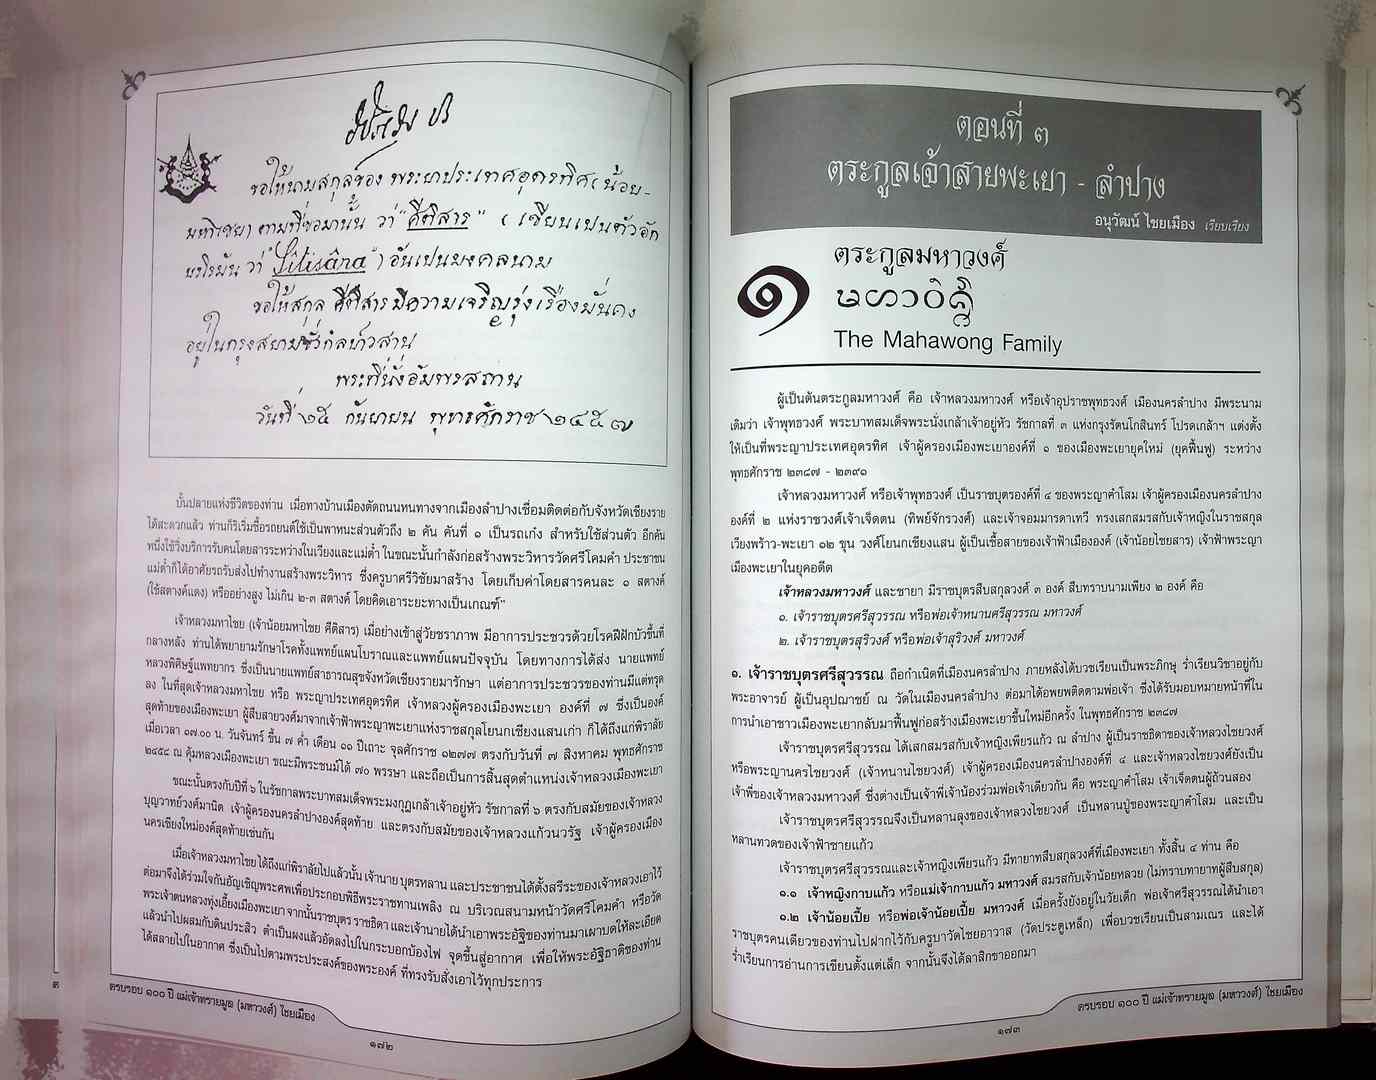 ขอให้นามสกุลของ พระยาประเทศอุดรทิศ (น้อย-
มหาไชย) ตามที่ขอมานั้น ว่า "ศีติสาร" (เขียนเปนตัวอัก
ษรโรมัน ว่า "Sitisâra") อันเปนมงคลนาม
ขอให้สกุล ศีติสาร มีความเจริญรุ่งเรืองมั่นคง
อยู่ในกรุงสยามชั่วกัลปาวสาน
พระที่นั่งอัมพรสถาน
วันที่ ๑๕ กันยายน พุทธศักราช ๒๔๕๗
บั้นปลายแห่งชีวิตของท่าน เมื่อทางบ้านเมืองตัดถนนหนทางจากเมืองลำปางเชื่อมติดต่อกับจังหวัดเชียงราย
ได้สะดวกแล้ว ท่านก็ริเริ่มซื้อรถยนต์ใช้เป็นพาหนะส่วนตัวถึง ๒ คัน คันที่ ๑ เป็นรถเก๋ง สำหรับใช้ส่วนตัว อีกคัน
หนึ่งใช้วิ่งบริการรับคนโดยสารระหว่างในเวียงและแม่ต๋ำ ในขณะนั้นกำลังก่อสร้างพระวิหารวัดศรีโคมคำ ประชาชน
แม่ต๋ำก็ได้อาศัยรถรับส่งไปทำงานสร้างพระวิหาร ซึ่งครูบาศรีวิชัยมาสร้าง โดยเก็บค่าโดยสารคนละ ๑ สตางค์
(ใช้สตางค์แดง) หรืออย่างสูง ไม่เกิน ๒-๓ สตางค์ โดยคิดเอาระยะทางเป็นเกณฑ์"
เจ้าหลวงมหาไชย (เจ้าน้อยมหาไชย ศีติสาร) เมื่อย่างเข้าสู่วัยชราภาพ มีอาการประชวรด้วยโรคฝีฝักบัวขึ้นที่
กลางหลัง ท่านได้พยายามรักษาโรคทั้งแพทย์แผนโบราณและแพทย์แผนปัจจุบัน โดยทางการได้ส่ง นายแพทย์
หลวงพิศิษฐ์แพทยากร ซึ่งเป็นนายแพทย์สาธารณสุขจังหวัดเชียงรายมารักษา แต่อาการประชวรของท่านมีแต่ทรุด
ลง ในที่สุดเจ้าหลวงมหาไชย หรือ พระญาประเทศอุดรทิศ เจ้าหลวงผู้ครองเมืองพะเยา องค์ที่ ๗ ซึ่งเป็นองค์
สุดท้ายของเมืองพะเยา ผู้สืบสายวงศ์มาจากเจ้าฟ้าพระญาพะเยาแห่งราชสกุลโยนกเชียงแสนเก่า ก็ได้ถึงแก่พิราลัย
เมื่อเวลา ๑๗.๐๐ น. วันจันทร์ ขึ้น ๗ ค่ำ เดือน ๑๐ ปีเถาะ จุลศักราช ๑๒๗๗ ตรงกับวันที่ ๗ สิงหาคม พุทธศักราช
๒๔๕๘ ณ คุ้มหลวงเมืองพะเยา ขณะมีพระชนม์ได้ ๗๐ พรรษา และถือเป็นการสิ้นสุดตำแหน่งเจ้าหลวงเมืองพะเยา
ขณะนั้นตรงกับปีที่ ๖ ในรัชกาลพระบาทสมเด็จพระมงกุฎเกล้าเจ้าอยู่หัว รัชกาลที่ ๖ ตรงกับสมัยของเจ้าหลวง
บุญวาทย์วงศ์มานิต เจ้าผู้ครองนครลำปางองค์สุดท้าย และตรงกับสมัยของเจ้าหลวงแก้วนวรัฐ เจ้าผู้ครองเมือง
นครเชียงใหม่องค์สุดท้ายเช่นกัน
เมื่อเจ้าหลวงมหาไชยได้ถึงแก่พิราลัยไปแล้วนั้น เจ้านาย บุตรหลาน และประชาชนได้ตั้งสรีระของเจ้าหลวงเอาไว้
ต่อมาจึงได้ร่วมใจกันอัญเชิญพระศพเพื่อประกอบพิธีพระราชทานเพลิง ณ บริเวณสนามหน้าวัดศรีโคมคำ หรือวัด
พระเจ้าตนหลวงทุ่งเอี้ยงเมืองพะเยา จากนั้นราชบุตร ราชธิดา และเจ้านายได้นำเอาพระอัฐิของท่านมาเผาบดให้ละเอียด
แล้วนำไปผสมกับดินประสิว ตำเป็นผงแล้วอัดลงไปในกระบอกบ้องไฟ จุดขึ้นสู่อากาศ เพื่อให้พระอัฐิธาติของท่าน
ได้สลายไปในอากาศ ซึ่งเป็นไปตามพระประสงค์ของพระองค์ ที่ทรงรับสั่งเอาไว้ทุกประการ
ครบรอบ ๑๐๐ ปี แม่เจ้าทรายมูล (มหาวงศ์) ไชยเมือง
๑๗๒
ตอนที่ ๓
ตระกูลเจ้าสายพะเยา - ลำปาง
อนุวัฒน์ ไชยเมือง เรียบเรียง
๑
ตระกูลมหาวงศ์
The Mahawong Family
ผู้เป็นต้นตระกูลมหาวงศ์ คือ เจ้าหลวงมหาวงศ์ หรือเจ้าอุปราชพุทธวงศ์ เมืองนครลำปาง มีพระนาม
เดิมว่า เจ้าพุทธวงศ์ พระบาทสมเด็จพระนั่งเกล้าเจ้าอยู่หัว รัชกาลที่ ๓ แห่งกรุงรัตนโกสินทร์ โปรดเกล้าฯ แต่งตั้ง
ให้เป็นที่พระญาประเทศอุดรทิศ เจ้าผู้ครองเมืองพะเยาองค์ที่ ๑ ของเมืองพะเยายุคใหม่ (ยุคฟื้นฟู) ระหว่าง
พุทธศักราช ๒๓๘๗ - ๒๓๙๑
เจ้าหลวงมหาวงศ์ หรือเจ้าพุทธวงศ์ เป็นราชบุตรองค์ที่ ๔ ของพระญาคำโสม เจ้าผู้ครองเมืองนครลำปาง
องค์ที่ ๒ แห่งราชวงศ์เจ้าเจ็ดตน (ทิพย์จักรวงศ์) และเจ้าจอมมารดาเทวี ทรงเสกสมรสกับเจ้าหญิงในราชสกุล
เวียงพร้าว-พะเยา ๑๒ ขุน วงศ์โยนกเชียงแสน ผู้เป็นเชื้อสายของเจ้าฟ้าเมืององค์ (เจ้าน้อยไชยสาร) เจ้าฟ้าพระญา
เมืองพะเยาในยุคอดีต
เจ้าหลวงมหาวงศ์ และชายา มีราชบุตรสืบสกุลวงศ์ ๓ องค์ สืบทราบนามเพียง ๒ องค์ คือ
๑. เจ้าราชบุตรศรีสุวรรณ หรือพ่อเจ้าหนานศรีสุวรรณ มหาวงศ์
๒. เจ้าราชบุตรสุริวงศ์ หรือพ่อเจ้าสุริวงศ์ มหาวงศ์
๑. เจ้าราชบุตรศรีสุวรรณ ถือกำเนิดที่เมืองนครลำปาง ภายหลังได้บวชเรียนเป็นพระภิกษุ ร่ำเรียนวิชาอยู่กับ
พระอาจารย์ ผู้เป็นอุปัฌาชย์ ณ วัดในเมืองนครลำปาง ต่อมาได้อพยพติดตามพ่อเจ้า ซึ่งได้รับมอบหมายหน้าที่ใน
การนำเอาชาวเมืองพะเยากลับมาฟื้นฟูก่อสร้างเมืองพะเยาขึ้นใหม่อีกครั้ง ในพุทธศักราช ๒๓๘๗
เจ้าราชบุตรศรีสุวรรณ ได้เสกสมรสกับเจ้าหญิงเพียรแก้ว ณ ลำปาง ผู้เป็นราชธิดาของเจ้าหลวงไชยวงศ์
หรือพระญานครไชยวงศ์ (เจ้าหนานไชยวงศ์) เจ้าผู้ครองเมืองนครลำปางองค์ที่ ๔ และเจ้าหลวงไชยวงศ์ยังเป็น
เจ้าพี่ของเจ้าหลวงมหาวงศ์ ซึ่งต่างเป็นเจ้าพี่เจ้าน้องร่วมพ่อเจ้าเดียวกัน คือ พระญาคำโสม เจ้าเจ็ดตนผู้ถ้วนสอง
เจ้าราชบุตรศรีสุวรรณจึงเป็นหลานลุงของเจ้าหลวงไชยวงศ์ เป็นหลานปู่ของพระญาคำโสม และเป็น
หลานทวดของเจ้าฟ้าชายแก้ว
เจ้าราชบุตรศรีสุวรรณและเจ้าหญิงเพียรแก้ว มีทายาทสืบสกุลวงศ์ที่เมืองพะเยา ทั้งสิ้น ๔ ท่าน คือ
๑.๑ เจ้าหญิงกาบแก้ว หรือแม่เจ้ากาบแก้ว มหาวงศ์ สมรสกับเจ้าน้อยหลวย (ไม่ทราบทายาทผู้สืบสกุล)
๑.๒ เจ้าน้อยเปี้ย หรือพ่อเจ้าน้อยเปี้ย มหาวงศ์ เมื่อครั้งยังอยู่ในวัยเด็ก พ่อเจ้าศรีสุวรรณได้นำเอา
ราชบุตรคนเดียวของท่านไปฝากไว้กับครูบาวัดไชยอาวาส (วัดประตูเหล็ก) เพื่อบวชเรียนเป็นสามเณร และได้
ร่ำเรียนการอ่านการเขียนตั้งแต่เล็ก จากนั้นจึงได้ลาสิกขาออกมา
ครบรอบ ๑๐๐ ปี แม่เจ้าทรายมูล (มหาวงศ์) ไชยเมือง
๑๗๓